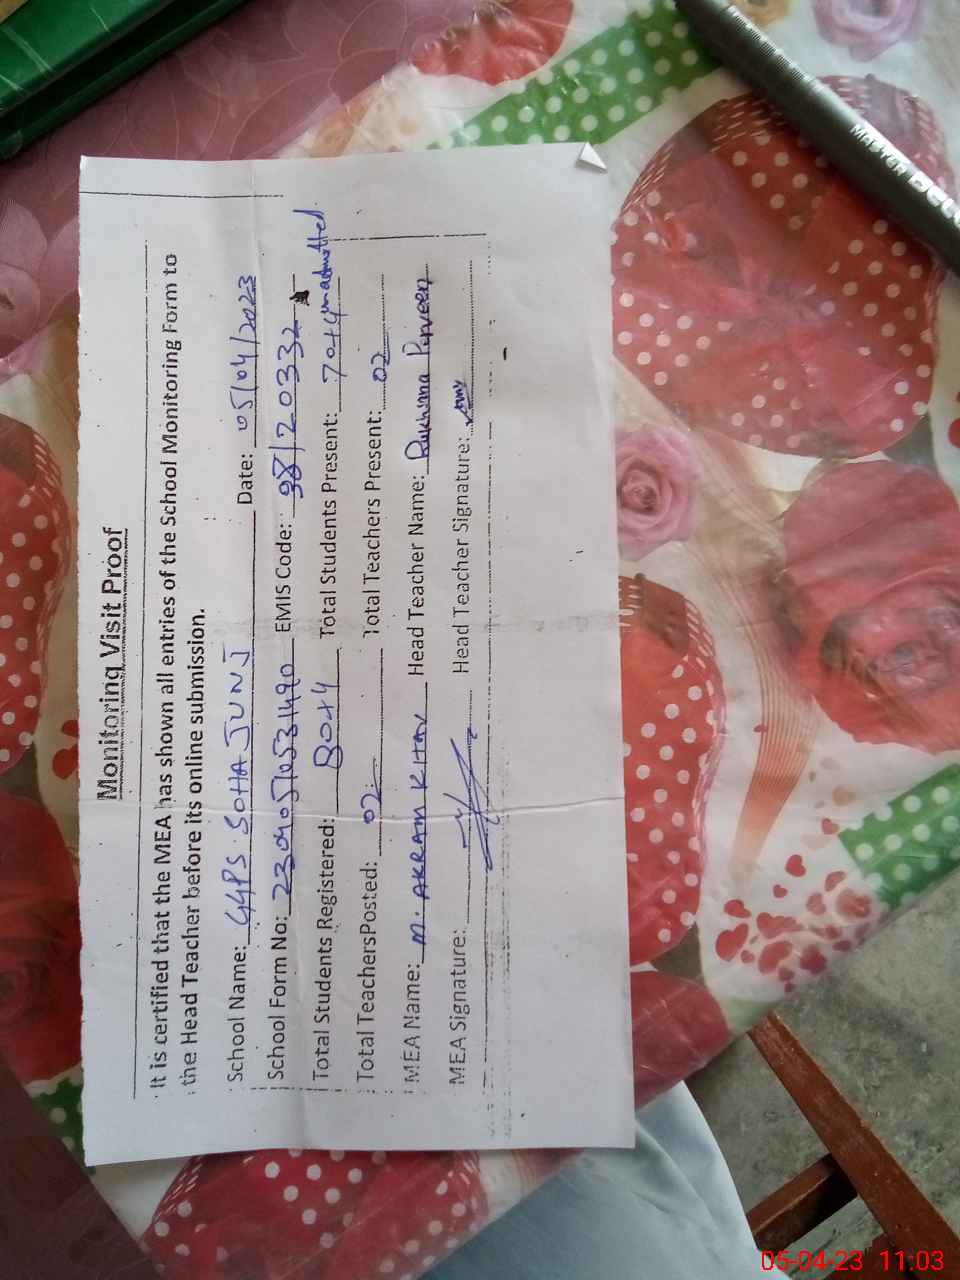 Monitoring Visit Proof
It is certified that the MEA has shown all entries of the School Monitoring Form to
the Head Teacher before its online submission.
School Name: GGPS SOHA JUNJ Date: 05/04/2023
School Form No: EMIS Code:
Total Students Registered: 80+4 Total Students Present: 70+4 unadmitted
Total TeachersPosted: 02 Total Teachers Present: 02
MEA Name: M. AKRAM KHAN Head Teacher Name: Rukhsana Parveen
MEA Signature: Head Teacher Signature:
MASTER
05-04-23 11:03